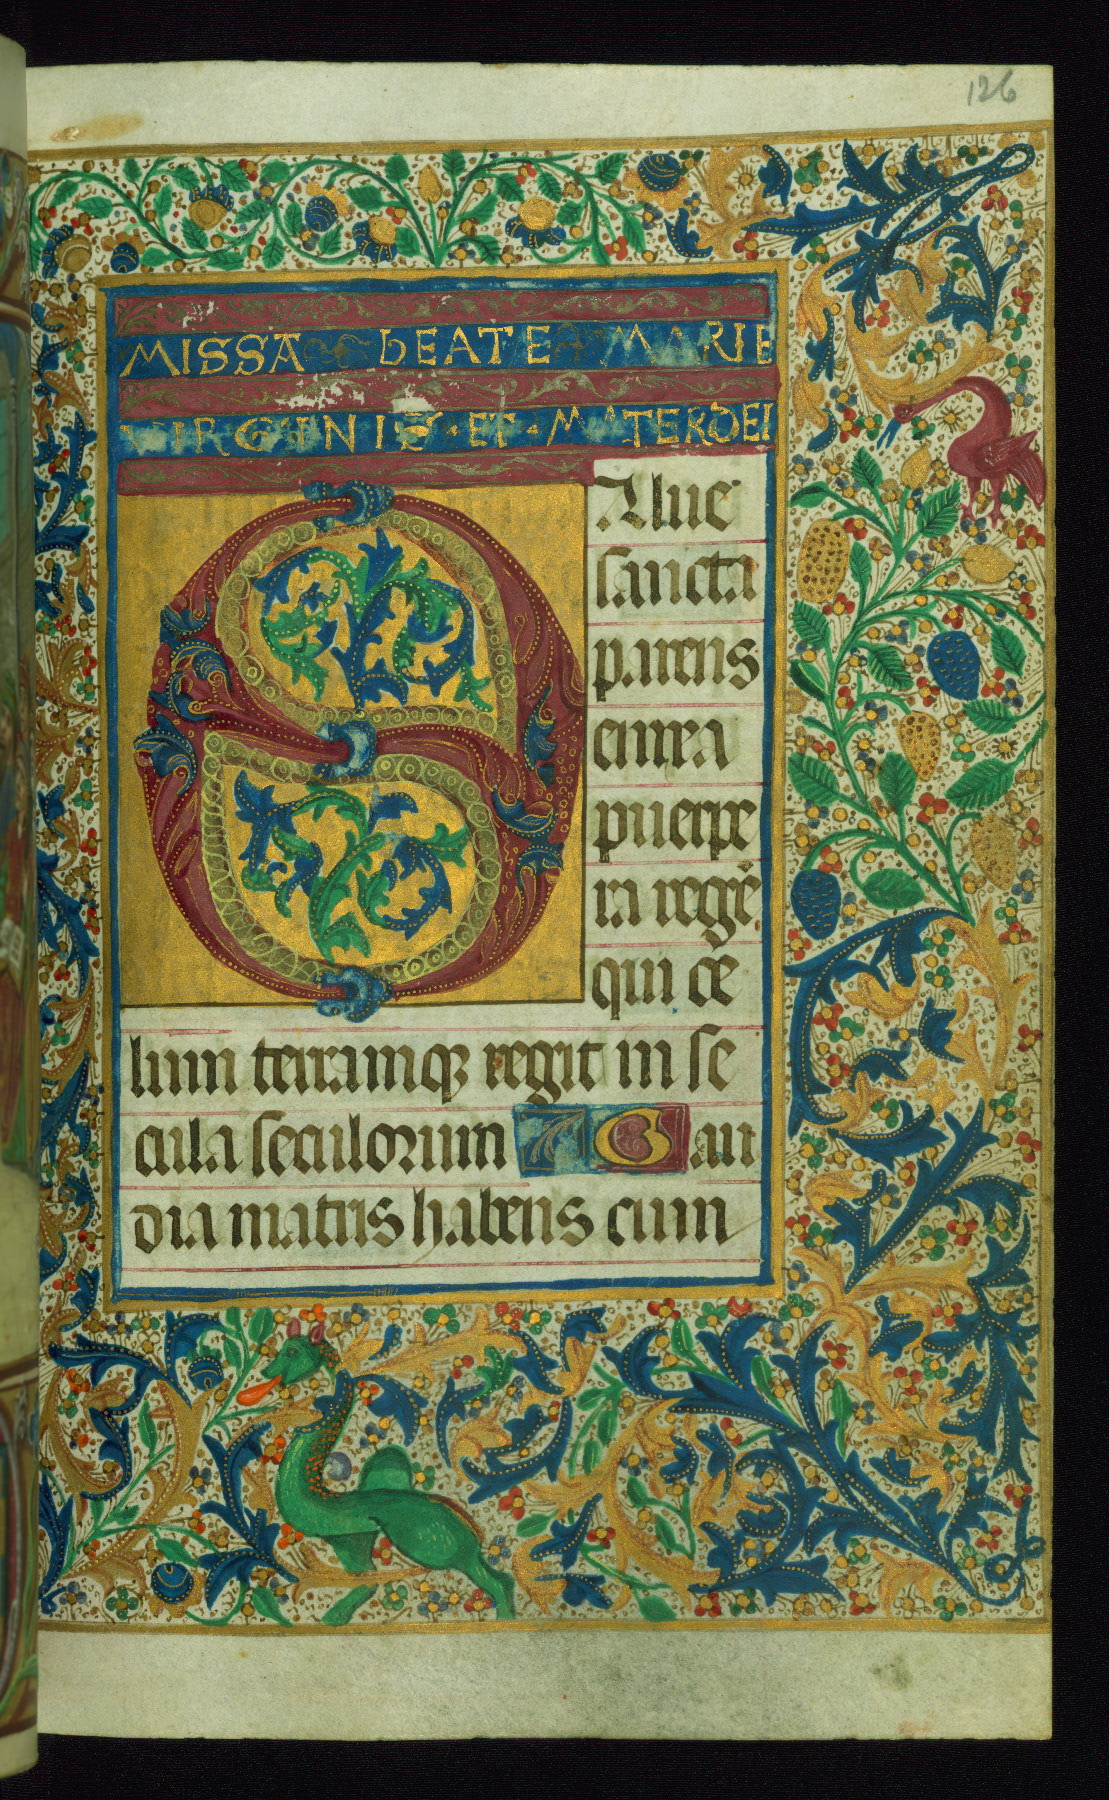 126
MISSA BEATE MARIE
VIRGINIS ET MATER DEI
S Alue
sancta
parens
enixa
puerpe
ra regẽ
qui ce
lum terramqꝫ regit in se
cula seculorum Gau
dia matris habens cum